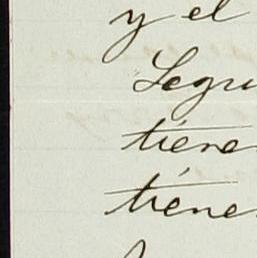 y el
Segu
tiene
tiene